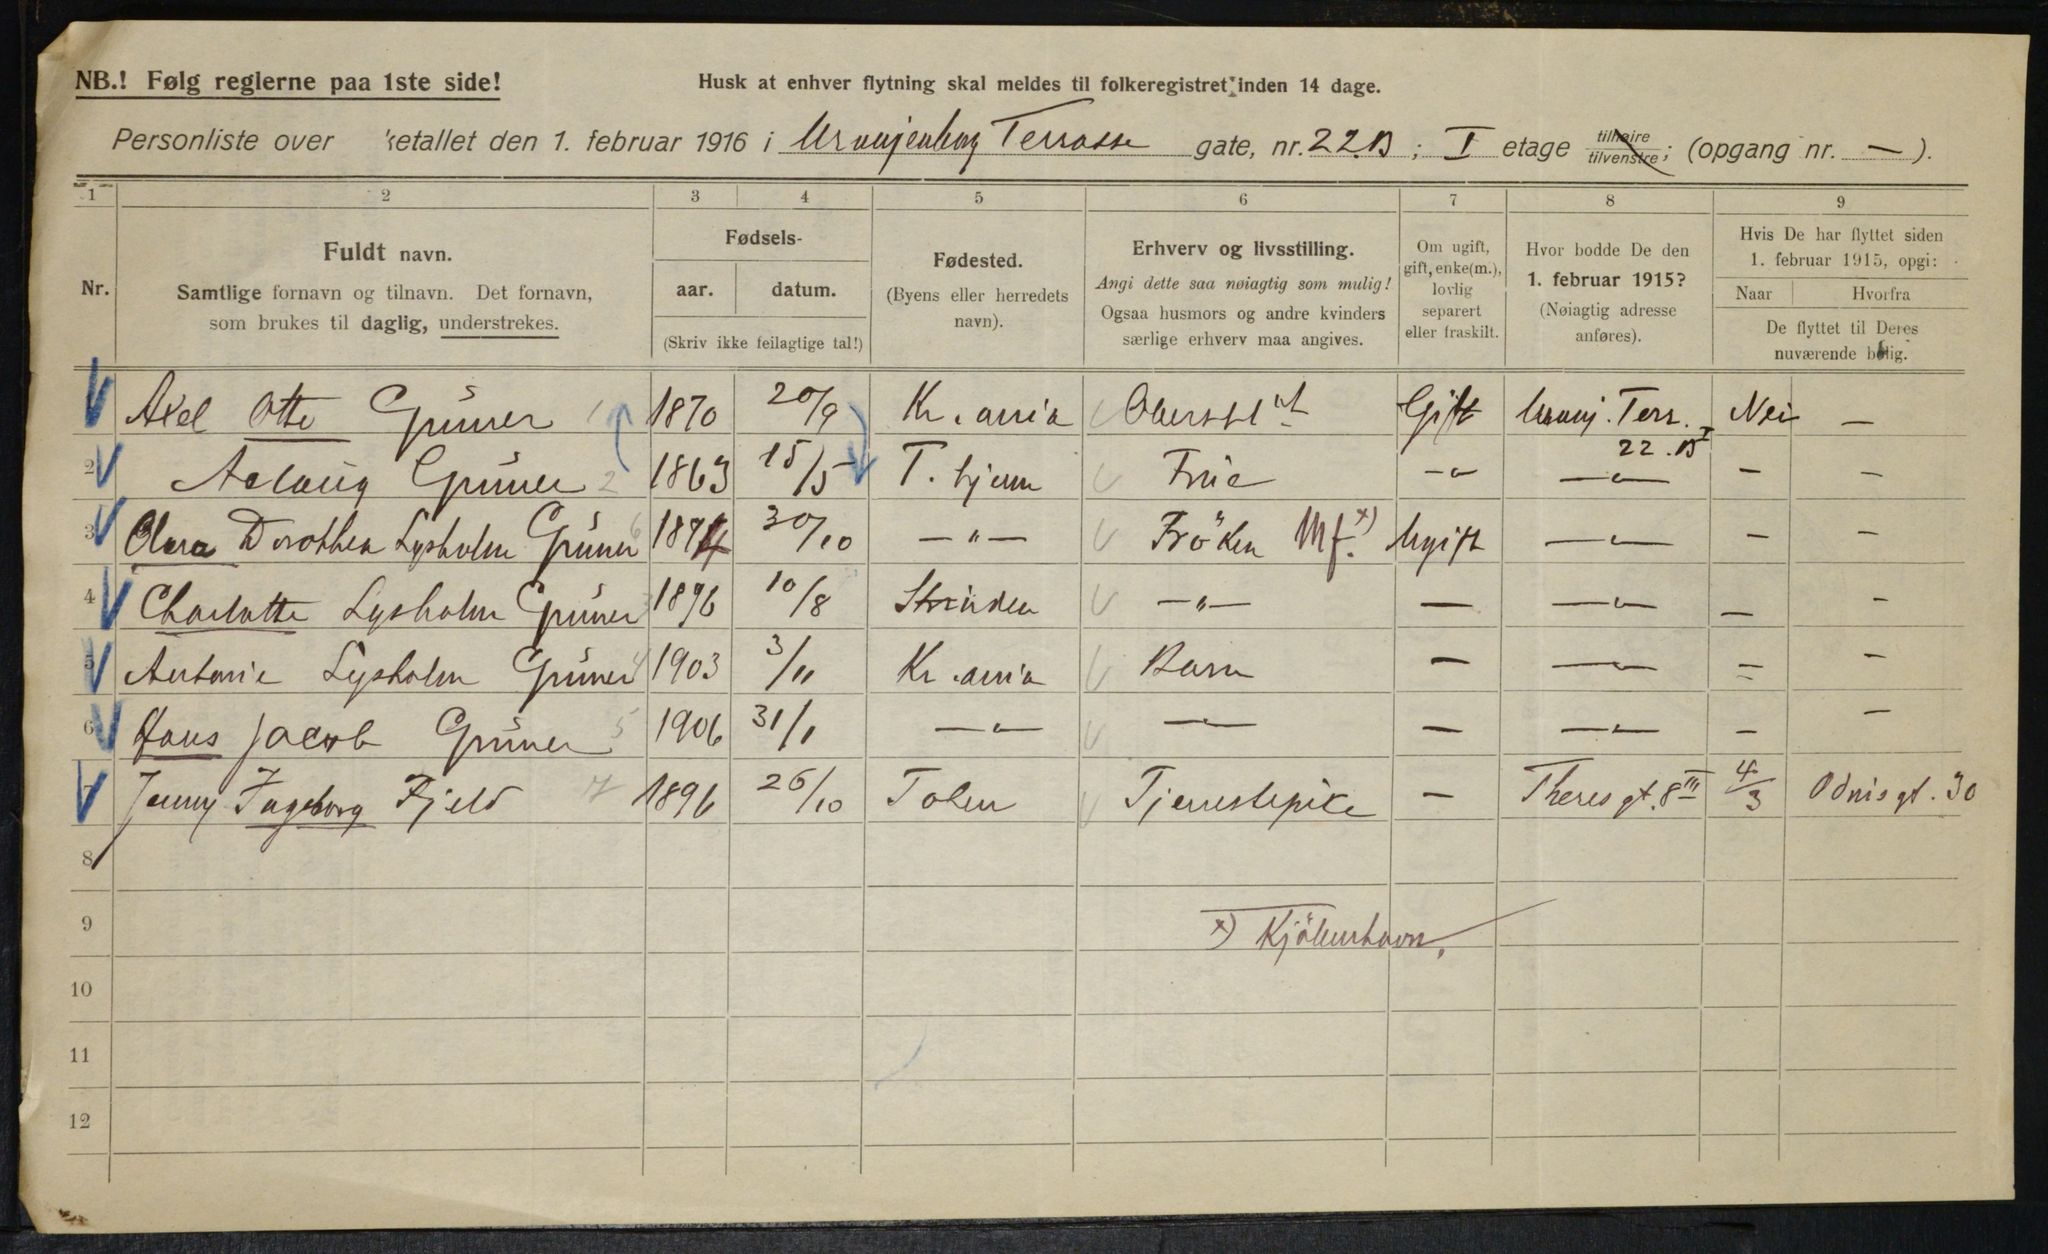 NB.! Følg reglerne paa 1ste side!
Husk at enhver flytning skal meldes til folkeregistret inden 14 dage.
Personliste over ketallet den 1. februar 1916 i Uranienborg Terrasse gate, nr. 22.B ; I etage tilhøire/tilvenstre; (opgang nr. — ).
1 2 3 4 5 6 7 8 9
Nr.
Fuldt navn.
Samtlige fornavn og tilnavn. Det fornavn,
som brukes til daglig, understrekes.
Fødsels-
aar. datum.
(Skriv ikke feilagtige tal!)
Fødested.
(Byens eller herredets
navn).
Erhverv og livsstilling.
Angi dette saa nøiagtig som mulig!
Ogsaa husmors og andre kvinders
særlige erhverv maa angives.
Om ugift,
gift, enke(m.),
lovlig
separert
eller fraskilt.
Hvor bodde De den
1. februar 1915?
(Nøiagtig adresse
anføres).
Hvis De har flyttet siden
1. februar 1915, opgi:
Naar Hvorfra
De flyttet til Deres
nuværende bolig.
Axel Otto Grüner 1 1870 20/9 Kr.ania Oberstlt Gift Uranj. Terr. 22.B I Nei —
2 Aslaug Grüner 2 1863 15/5 T.hjem Frue —"— —"— — —
3 Clara Dorothea Lysholm Grüner 6 1894 30/10 —"— Fröken Mf. x) Ugift —"— — —
4 Charlotte Lysholm Grüner 3 1896 10/8 Strinden —"— — —"— — —
5 Antonie Lysholm Grüner 4 1903 3/11 Kr.ania Barn — —"— = —
6 Hans Jacob Grüner 5 1906 31/1 —"— —"— — —"— — —
7 Jenny Ingeborg Fjeld 7 1896 26/10 Tolen Tjenestepike — Theresgt. 8 III 4/3 Odinsgt. 30
8
9 x) Kjöbenhavn.
10
11
12